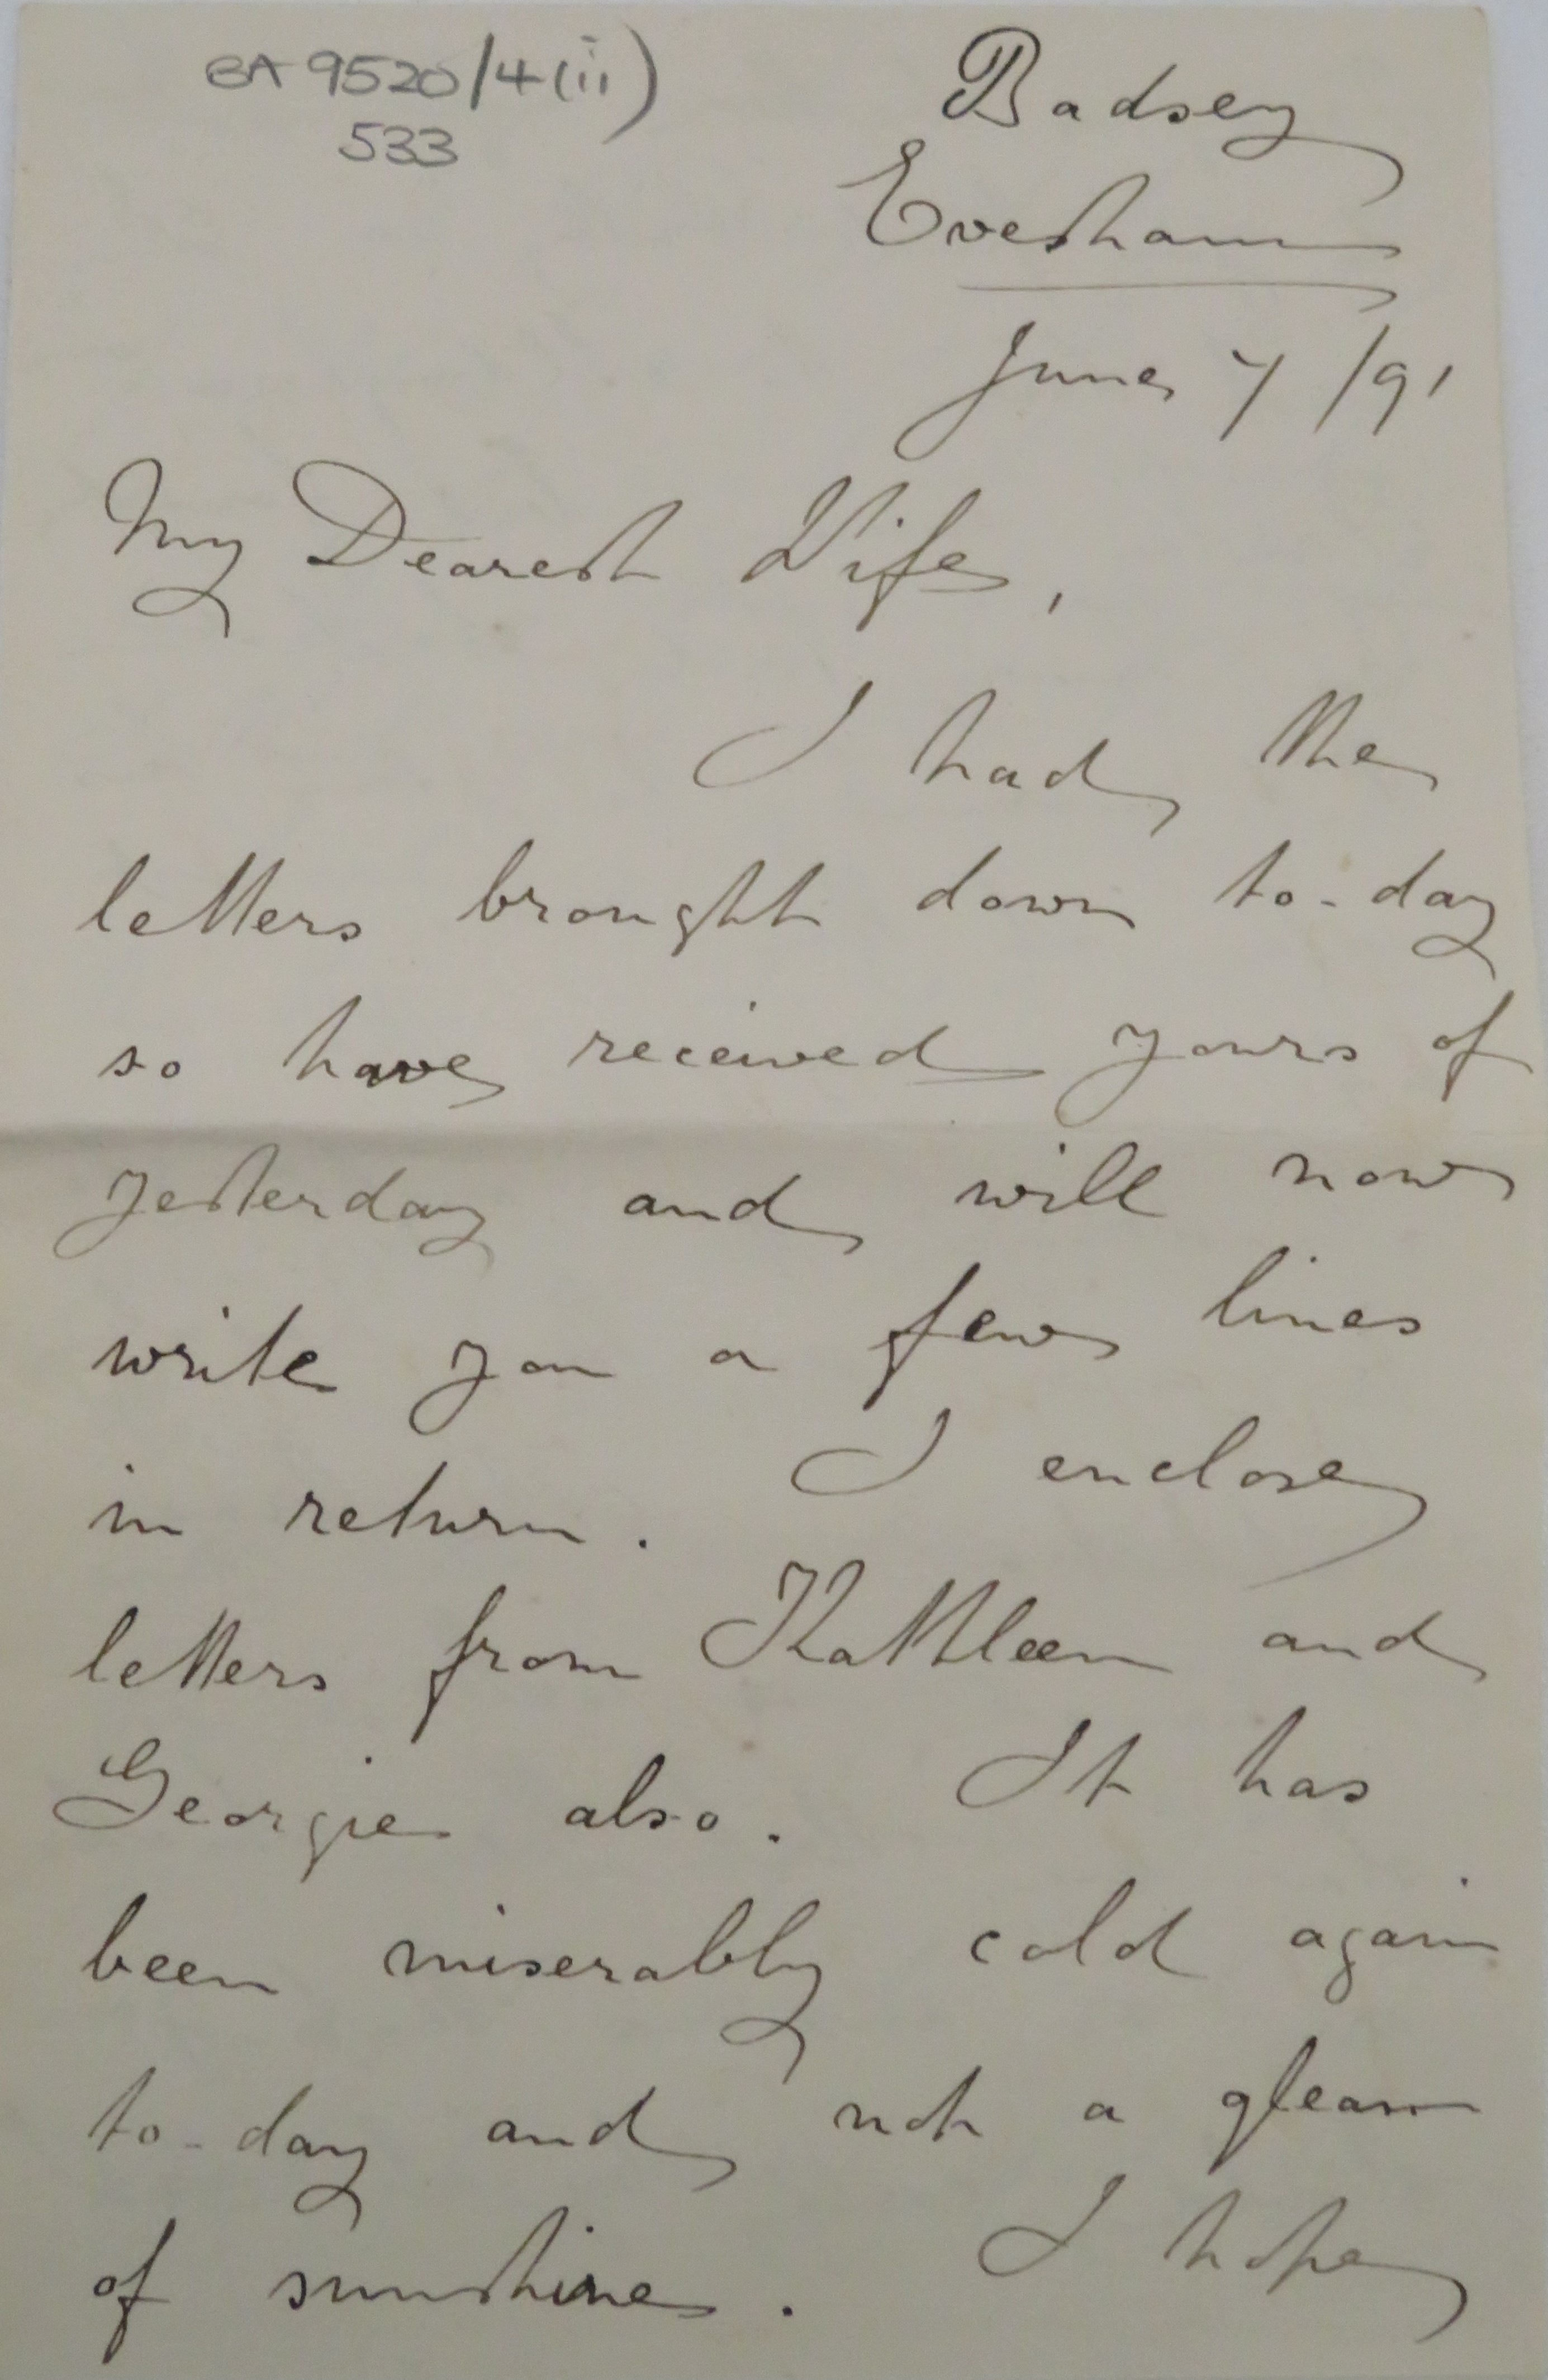 BA 9520/4(ii)
533
Badsey
Evesham
June 7 /91
My Dearest Wife,
I had the
letters brought down to-day
so have received yours of
yesterday and will now
write you a few lines
in return. I enclose
letters from Kathleen and
Georgie also. It has
been miserably cold again
to-day and not a gleam
of sunshine. I hope